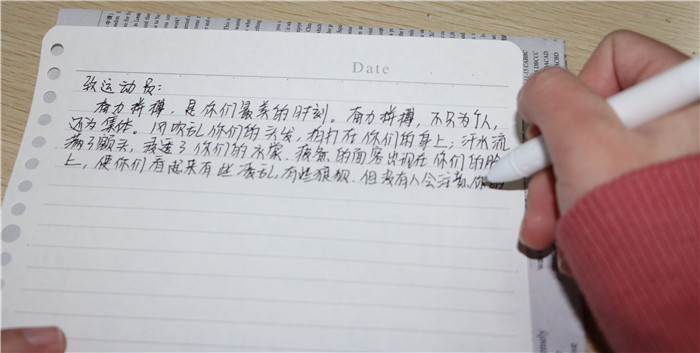 Date
致运动员:
奋力拼搏，是你们最美的时刻。奋力拼搏，不只为个人，
还为集体。风吹乱你们的头发，拍打在你们的身上；汗水流
满了额头，浸透了你们的衣裳。疲惫的面容出现在你们的脸
上，使你们看起来有些凌乱，有些狼狈。但没有人会注意，你